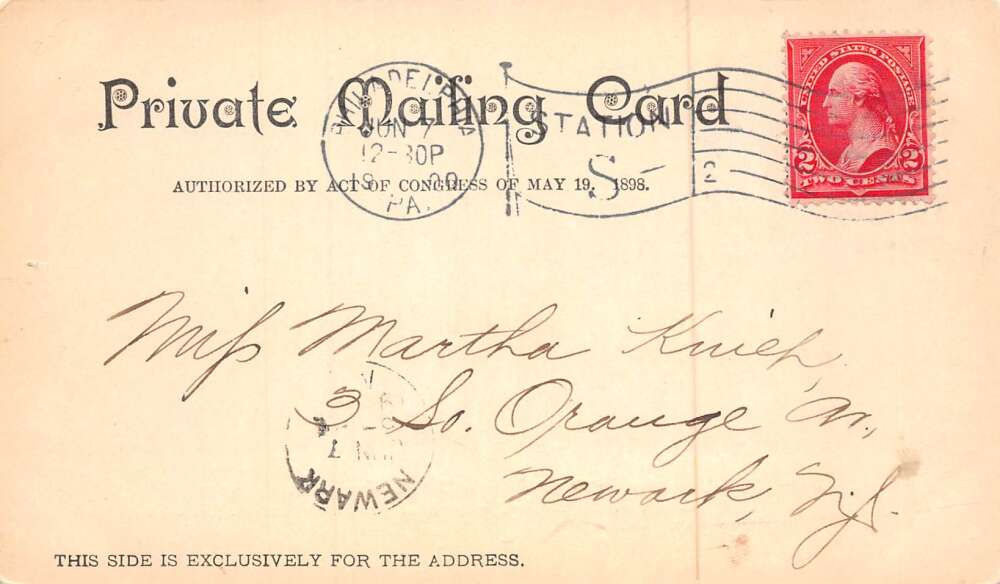 Private Mailing Card
AUTHORIZED BY ACT OF CONGRESS OF MAY 19, 1898.
PHILADELPHIA
JUN 7
12-30P
1900
PA.
STATION
S
2
UNITED STATES POSTAGE
2 2
TWO CENTS
Miss Martha
3 So. Orange Av.,
Newark, N.J.
NEWARK
JUN 7
THIS SIDE IS EXCLUSIVELY FOR THE ADDRESS.